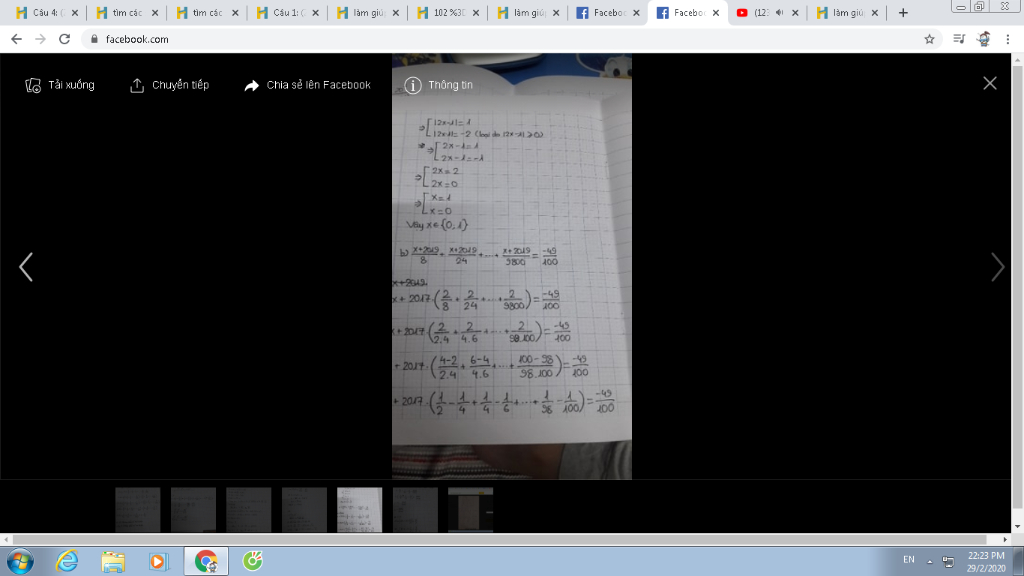 Câu 4: (
tìm các
tìm các
Câu 1: (
làm giúp
102 %3D
làm giúp
Facebook
Facebook
(12
làm giúp
facebook.com
Tải xuống
Chuyển tiếp
Chia sẻ lên Facebook
Thông tin
⇒ [ |2x-1| = 1
|2x-1| = -2 (loại do |2x-1| ≥ 0)
⇒ [ 2x-1 = 1
2x-1 = -1
⇒ [ 2x = 2
2x = 0
⇒ [ x = 1
x = 0
Vậy x ∈ {0,1}
b) x+2019/8 + x+2019/24 + ... + x+2019/9800 = -49/100
x+2019
x + 2017.(2/8 + 2/24 + ... + 2/9800) = -49/100
x + 2017.(2/2.4 + 2/4.6 + ... + 2/98.100) = -49/100
+ 2017.(4-2/2.4 + 6-4/4.6 + ... + 100-98/98.100) = -49/100
+ 2017.(1/2 - 1/4 + 1/4 - 1/6 + ... + 1/98 - 1/100) = -49/100
EN
22:23 PM
29/2/2020